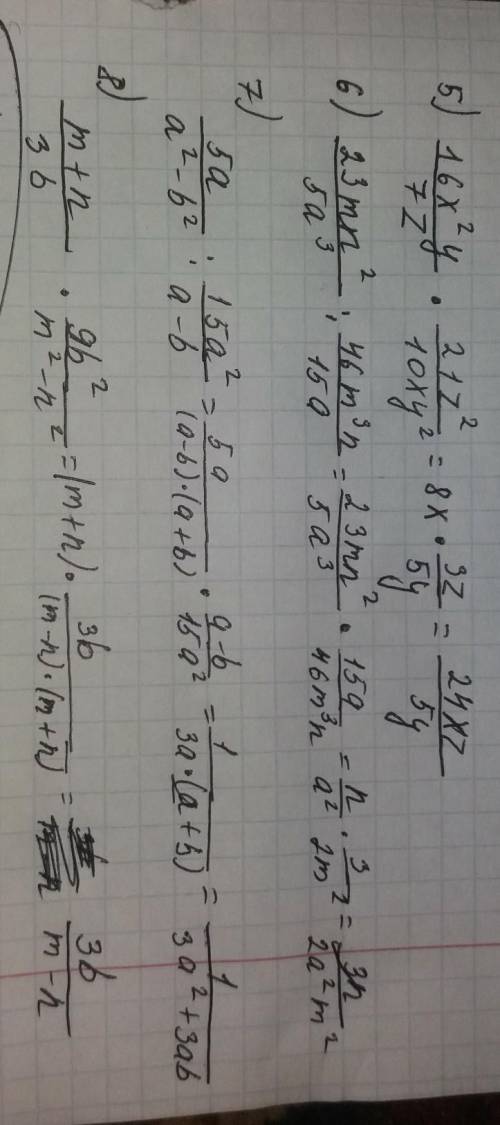 5) 16x²y/7z · 21z²/10xy² = 8x · 3z/5y = 24xz/5y
6) 23mn²/5a³ : 46m³n/15a = 23mn²/5a³ · 15a/46m³n = n/a² · 3/2m² = 3n/2a²m²
7) 5a/a²-b² : 15a²/a-b = 5a/(a-b)·(a+b) · a-b/15a² = 1/3a·(a+b) = 1/3a²+3ab
8) m+n/3b · 9b²/m²-n² = (m+n) · 3b/(m-n)·(m+n) = 3b/m-n